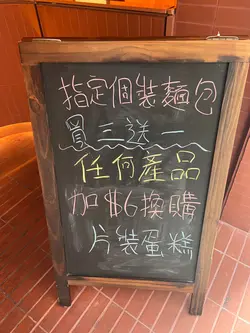 指定個裝麵包
買三送一
任何產品
加$6換購
片裝蛋糕